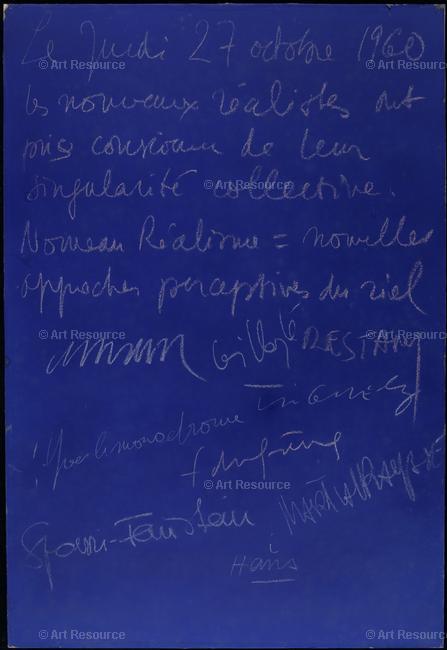 Le Jeudi 27 octobre 1960
les nouveaux réalistes ont
pris conscience de leur
singularité collective.
Nouveau Réalisme = nouvelles
approches perceptives du réel
Arman Villeglé RESTANY
Tinguely
Yves le monochrome
f dufrêne
MARTIALRAYSSE
Spoerri-Feinstein
Hains
© Art Resource
© Art Resource
© Art Resource
© Art Resource
© Art Resource
© Art Resource
© Art Resource
© Art Resource
© Art Resource
© Art Resource
© Art Resource
© Art Resource
© Art Resource